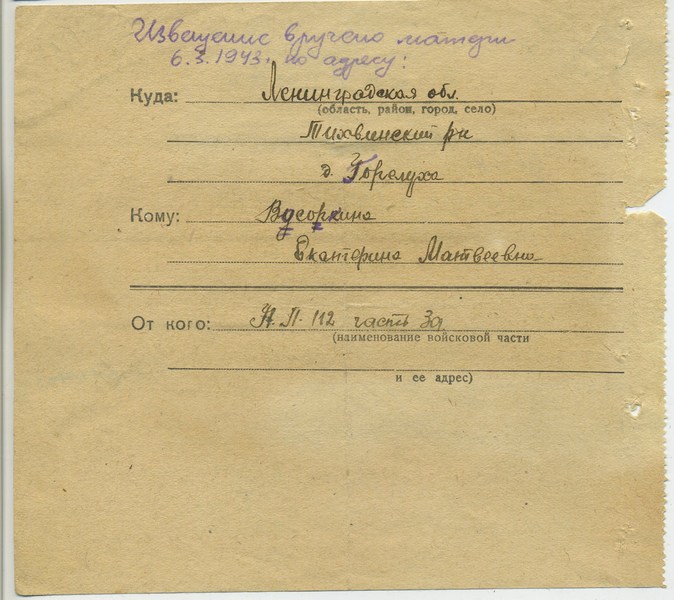 Извещение вручено матери
6.3.1943. по адресу:
Куда: Ленинградская обл.
(область, район, город, село)
Тихвинский рн
д. Горелуха
Кому:
Екатерина Матвеевна
От кого: П. 112 часть
(наименование войсковой части
и ее адрес)